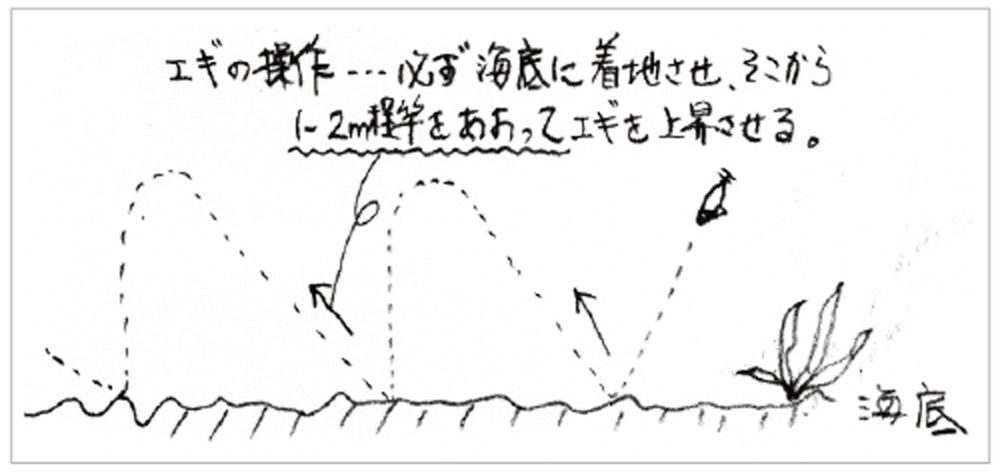 エギの操作…必ず海底に着地させ、そこから
1~2m程竿をあおってエギを上昇させる。
海底